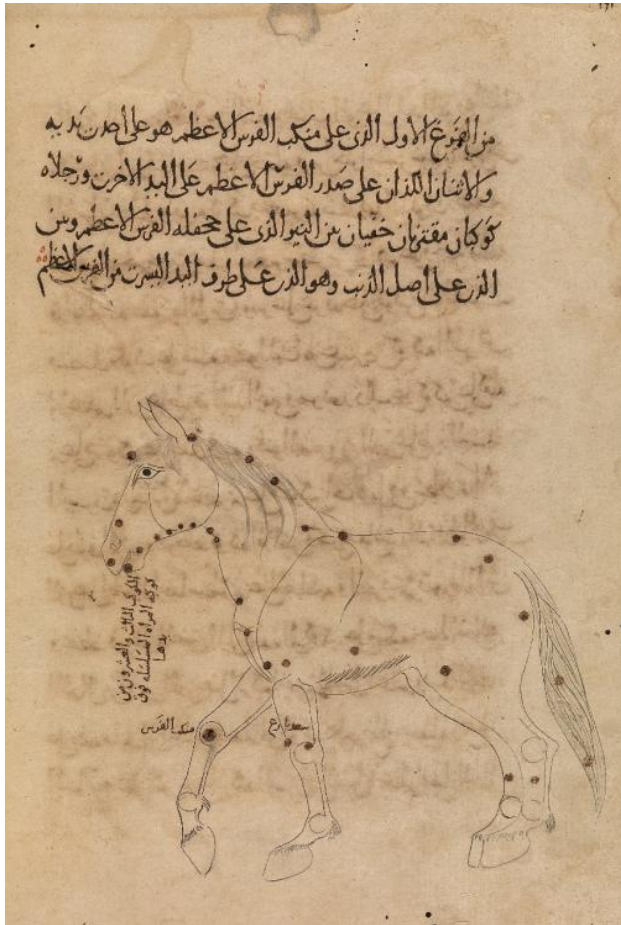 من المجموع الاول الذى على منكب الفرس الاعظم هو على احدى يديه
والاثنان اللذان على صدر الفرس الاعظم على اليد الاخرى ورجلاه
كوكبان مقترنان خفيان بين النير الذى على جحفله الفرس الاعظم وبين
الذى على اصل الذنب وهو الذى على طرف اليد اليسرى من الفرس الاعظم
الكوكب الثالث والعشرون من
كوكبه المراه المسلسله فوق
يدها
منكب الفرس